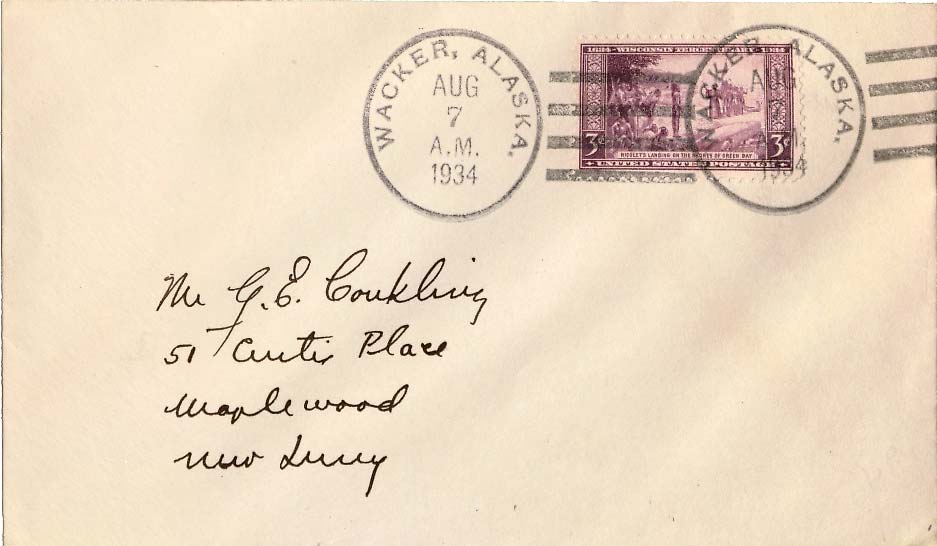 WACKER, ALASKA.
AUG
7
A.M.
1934
1634 - WISCONSIN TERCENTENARY - 1934
3¢ 3¢
NICOLET'S LANDING ON THE SHORES OF GREEN BAY
UNITED STATES POSTAGE
WACKER, ALASKA.
AUG
7
A.M.
1934
Mr G. E. Conkling
51 Curtis Place
Maplewood
New Jersey